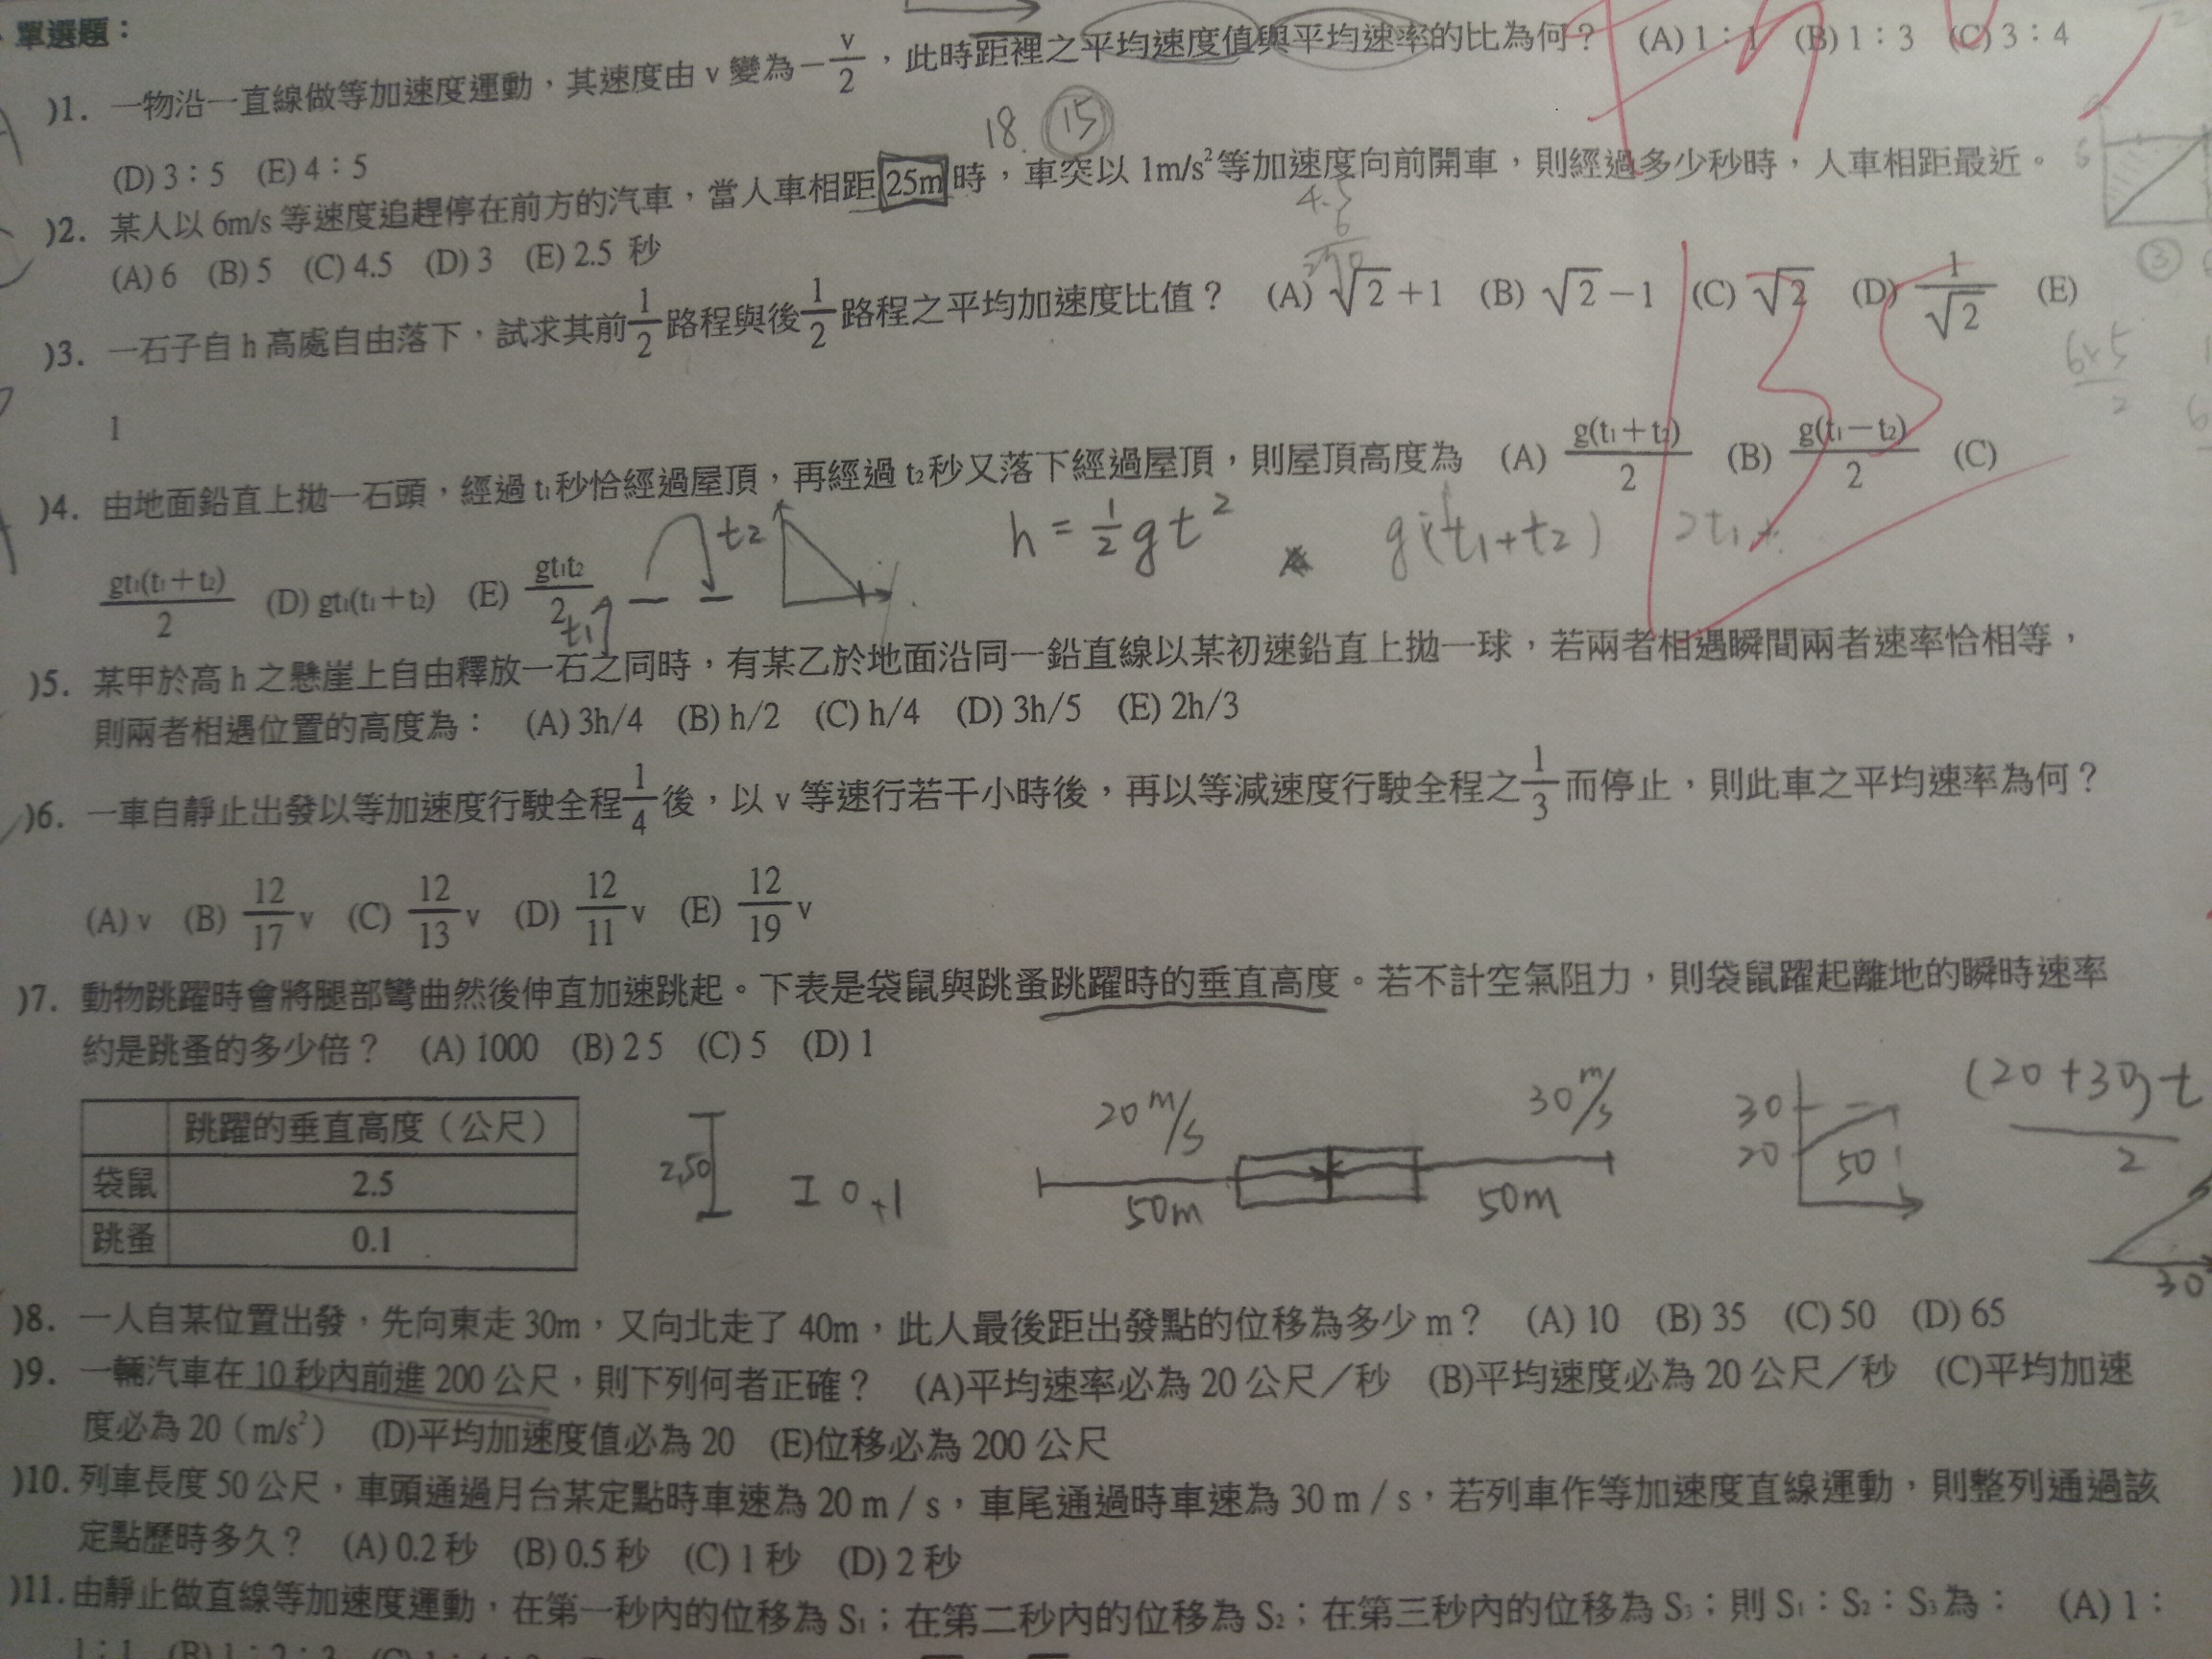 單選題：
)1. 一物沿一直線做等加速度運動，其速度由 v 變為 −v/2，此時距裡之平均速度值與平均速率的比為何？ (A) 1：1 (B) 1：3 (C) 3：4
(D) 3：5 (E) 4：5
18. 15
)2. 某人以 6m/s 等速度追趕停在前方的汽車，當人車相距 25m 時，車突以 1m/s² 等加速度向前開車，則經過多少秒時，人車相距最近。
(A) 6 (B) 5 (C) 4.5 (D) 3 (E) 2.5 秒
4.5
6
)3. 一石子自 h 高處自由落下，試求其前 1/2 路程與後 1/2 路程之平均加速度比值？ (A) √2＋1 (B) √2－1 (C) √2 (D) 1/√2 (E)
1
6×5
2
)4. 由地面鉛直上拋一石頭，經過 t₁ 秒恰經過屋頂，再經過 t₂ 秒又落下經過屋頂，則屋頂高度為 (A) g(t₁＋t₂)/2 (B) g(t₁－t₂)/2 (C)
gt₁(t₁＋t₂)/2 (D) gt₁(t₁＋t₂) (E) gt₁t₂/2
t1 t2 h = 1/2 gt² g(t1+t2) 2t1+
)5. 某甲於高 h 之懸崖上自由釋放一石之同時，有某乙於地面沿同一鉛直線以某初速鉛直上拋一球，若兩者相遇瞬間兩者速率恰相等，
則兩者相遇位置的高度為： (A) 3h/4 (B) h/2 (C) h/4 (D) 3h/5 (E) 2h/3
)6. 一車自靜止出發以等加速度行駛全程 1/4 後，以 v 等速行若干小時後，再以等減速度行駛全程之 1/3 而停止，則此車之平均速率為何？
(A) v (B) 12/17 v (C) 12/13 v (D) 12/11 v (E) 12/19 v
)7. 動物跳躍時會將腿部彎曲然後伸直加速跳起。下表是袋鼠與跳蚤跳躍時的垂直高度。若不計空氣阻力，則袋鼠躍起離地的瞬時速率
約是跳蚤的多少倍？ (A) 1000 (B) 2 5 (C) 5 (D) 1
跳躍的垂直高度（公尺）
袋鼠 2.5
跳蚤 0.1
2.50 0.1
20 m/s 30 m/s
50m 50m
30
20 50
(20+30)t
2
30
)8. 一人自某位置出發，先向東走 30m，又向北走了 40m，此人最後距出發點的位移為多少 m？ (A) 10 (B) 35 (C) 50 (D) 65
)9. 一輛汽車在 10 秒內前進 200 公尺，則下列何者正確？ (A)平均速率必為 20 公尺／秒 (B)平均速度必為 20 公尺／秒 (C)平均加速
度必為 20（m/s²） (D)平均加速度值必為 20 (E)位移必為 200 公尺
)10. 列車長度 50 公尺，車頭通過月台某定點時車速為 20 m / s，車尾通過時車速為 30 m / s，若列車作等加速度直線運動，則整列通過該
定點歷時多久？ (A) 0.2 秒 (B) 0.5 秒 (C) 1 秒 (D) 2 秒
)11. 由靜止做直線等加速度運動，在第一秒內的位移為 S₁；在第二秒內的位移為 S₂；在第三秒內的位移為 S₃；則 S₁：S₂：S₃ 為： (A) 1：
1：1 (B) 1：2：3